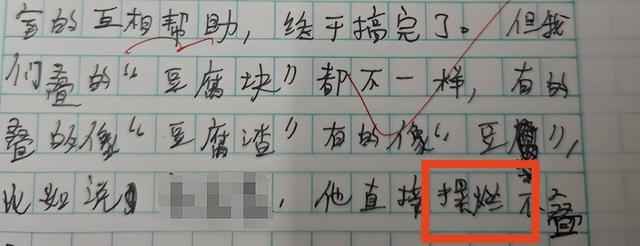 室的互相帮助，终于搞完了。但我
们叠的“豆腐块”都不一样，有的
叠的像“豆腐渣”有的像“豆腐”，
比如说，他直接摆烂不叠